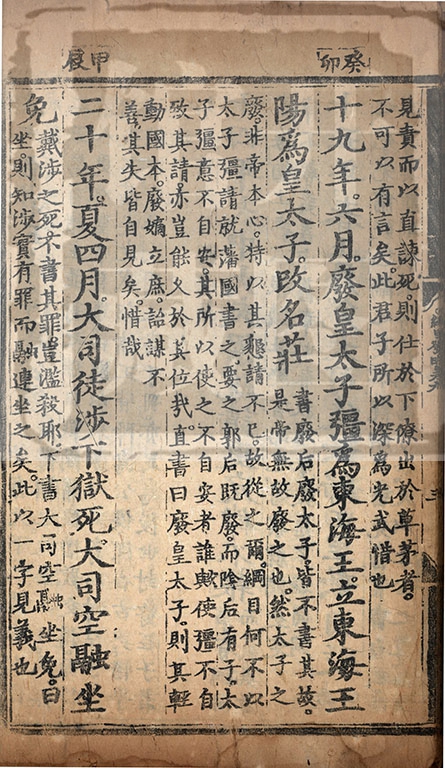 癸卯
見責而以直諫死。則仕於下僚出於草茅者。
不可以有言矣。此君子所以深爲光武惜也
十九年。六月。廢皇太子彊爲東海王。立東海王
陽爲皇太子。改名莊
書廢后廢太子。皆不書其故。
是帝無故廢之也。然太子之
廢。非帝本心。特以其懇請不已。故從之爾。綱目何不以
太子彊請就藩國書之。要之郭后既廢。而陰后有子。太
子彊意不自安。其所以使之不自安者誰歟。使彊不自
致其請。亦豈能久於其位哉。直書曰廢皇太子。則其輕
動國本。廢嫡立庶。詒謀不
善。其失皆自見矣。惜哉
甲辰
二十年。夏四月。大司徒涉下獄死。大司空融坐
免
戴涉之死。不書其罪。豈濫殺耶。下書大司空融坐免。曰
坐。則知涉實有罪。而融連坐之矣。此以一字見義也